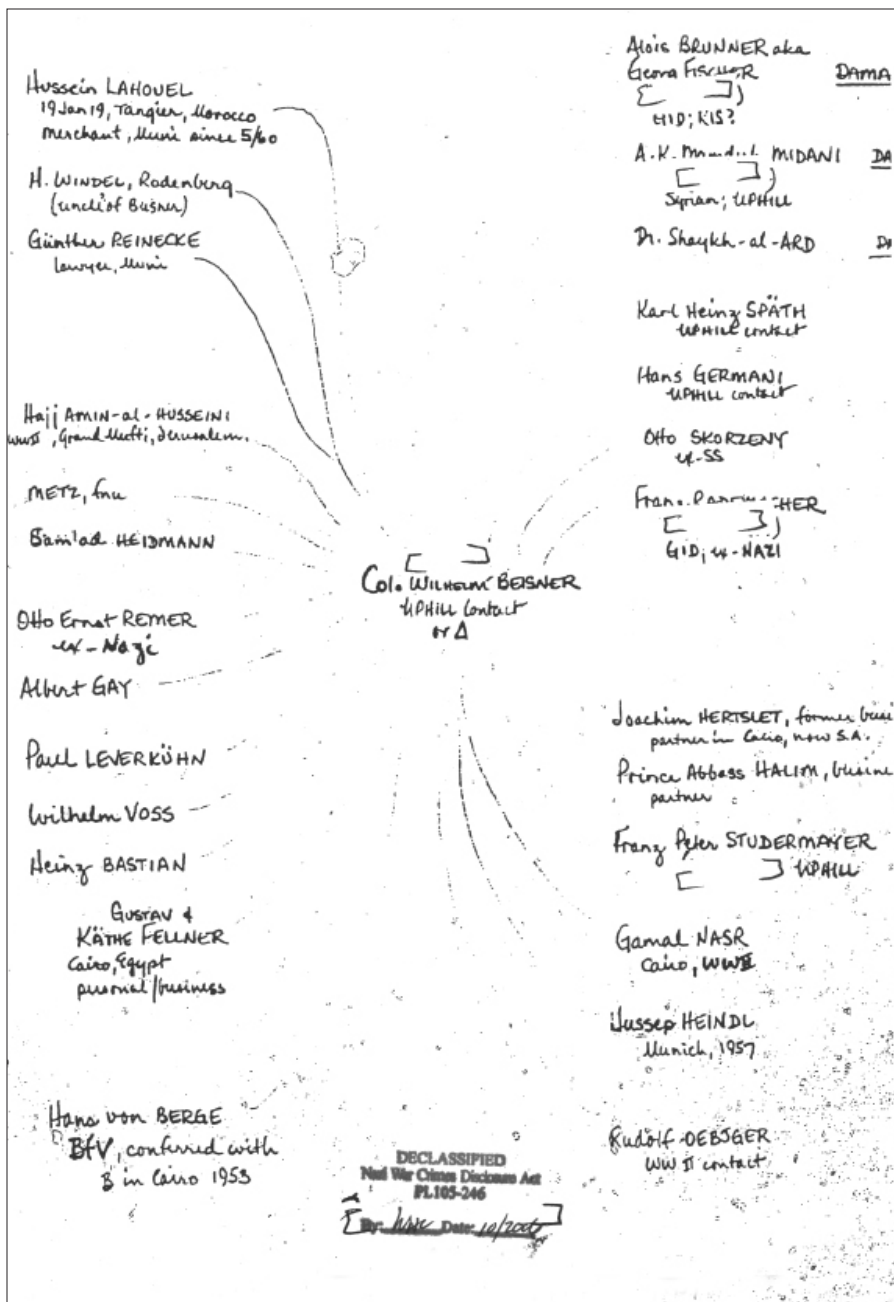 Hussein LAHOUEL
19 Jan 19, Tangier, Morocco
merchant, Muni since 5/60
H. WINDEL, Rodenberg
(uncle of Beisner)
Günther REINECKE
lawyer, Muni
Hajj AMIN-al-HUSSEINI
WWII, Grand Mufti, Jerusalem.
METZ, fnu
HEIDMANN
Otto Ernst REMER
ex-Nazi
Albert GAY
Paul LEVERKÜHN
Wilhelm VOSS
Heinz BASTIAN
GUSTAV &
KÄTHE FELLNER
Cairo, Egypt
personal/business
Hans von BERGE
BfV, conferred with
B in Cairo 1953
[ ]
Col. WILHELM BEISNER
UPHILL Contact
or Δ
DECLASSIFIED
Nazi War Crimes Disclosure Act
PL105-246
[By: Date: 10/ ]
Alois BRUNNER aka
Georg FISCHER DAMA
[ ])
GID; RIS?
A.K. MIDANI DA
[ ])
Syrian; UPHILL
Dr. Shaykh-al-ARD DA
Karl Heinz SPÄTH
UPHILL contact
Hans GERMANI
UPHILL contact
Otto SKORZENY
ex-SS
[ ])
GID; ex-NAZI
Joachim HERTSLET, former busi
partner in Cairo, now S.A.
Prince Abbass HALIM, busine
partner
Franz Peter STUDERMAYER
[ ] UPHILL
Gamal NASR
Cairo, WWII
Jussep HEINDL
Munich, 1957
Rudolf
WW II contact